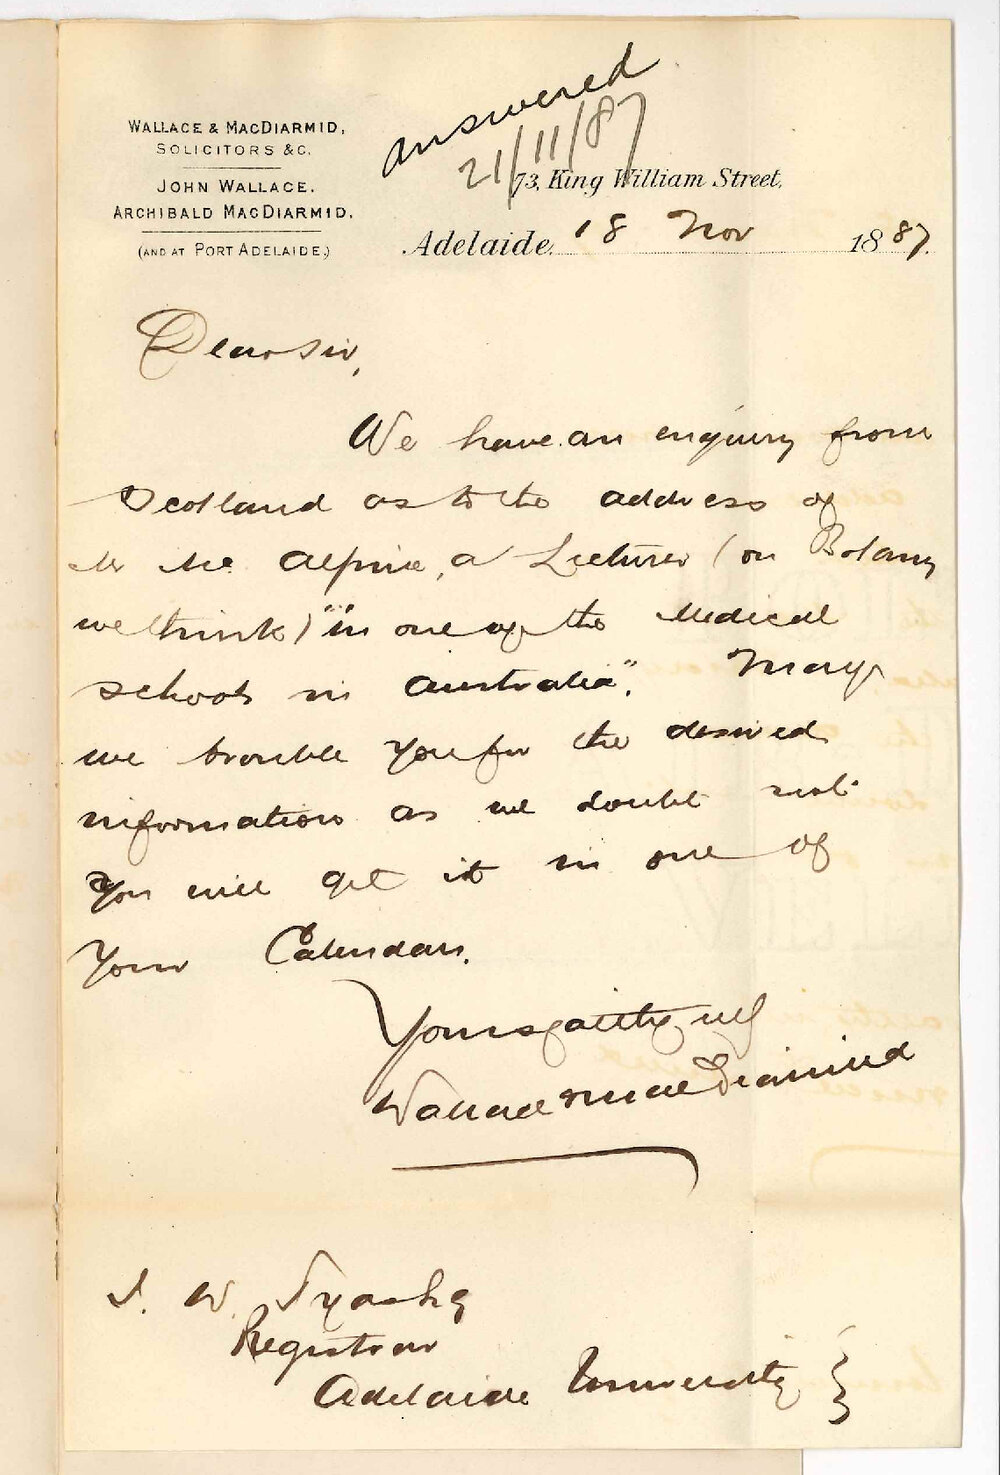 WALLACE & MACDIARMID,
SOLICITORS &C.
JOHN WALLACE.
ARCHIBALD MACDIARMID.
(AND AT PORT ADELAIDE,)
answered
21/11/87
73, King William Street,
Adelaide, 18 Nov 1887.
Dear Sir,
We have an enquiry from
Scotland as to the address of
Mr Mc Alpine, a Lecturer (on Botany
we think) "in one of the Medical
schools in Australia". May
we trouble you for the desired
information as we doubt not
you will get it in one of
your Calendars.
Yours faithfully
Wallace & MacDiarmid
J. W. Tyas Esq
Registrar
Adelaide University }